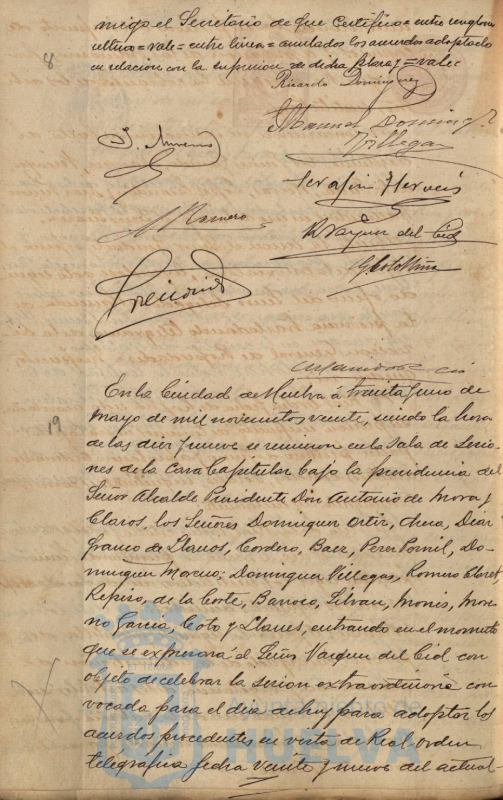 migo el Secretario de que Certifico = entre renglones
ultimo = vale = entre linea = anulados los acuerdos adoptados
en relacion con la supresion de dicha plaza = vale =
8
Ricardo Dominguez
Manuel Doming
Villegas
S. Moreno
Serafin
M Romero
R Vazquez del Cid
19
En la Ciudad de Huelva á treinta y uno de
Mayo de mil novecientos veinte, siendo la hora
de las diez y nueve se reunieron en la Sala de Sesio-
nes de la Casa Capitular bajo la presidencia del
Señor Alcalde Presidente Don Antonio de Mora y
Claros, los Señores Dominguez Ortiz, Diaz
Franco de Llanos, Cordero, Baez, Perez Pomil, Do-
minguez Moreno, Dominguez Villegas, Romero Lloret,
Repiso, de la Corte, Barroco, Silvan, Monis, More-
no Garcia, Coto y Llanes, entrando en el momento
que se expresará el Señor Vazquez del Cid con
objeto de celebrar la sesion extraordinaria con
vocada para el dia de hoy para adoptar los
acuerdos procedentes en vista de Real orden
telegráfica fecha veinte y nueve del actual
HUELVA